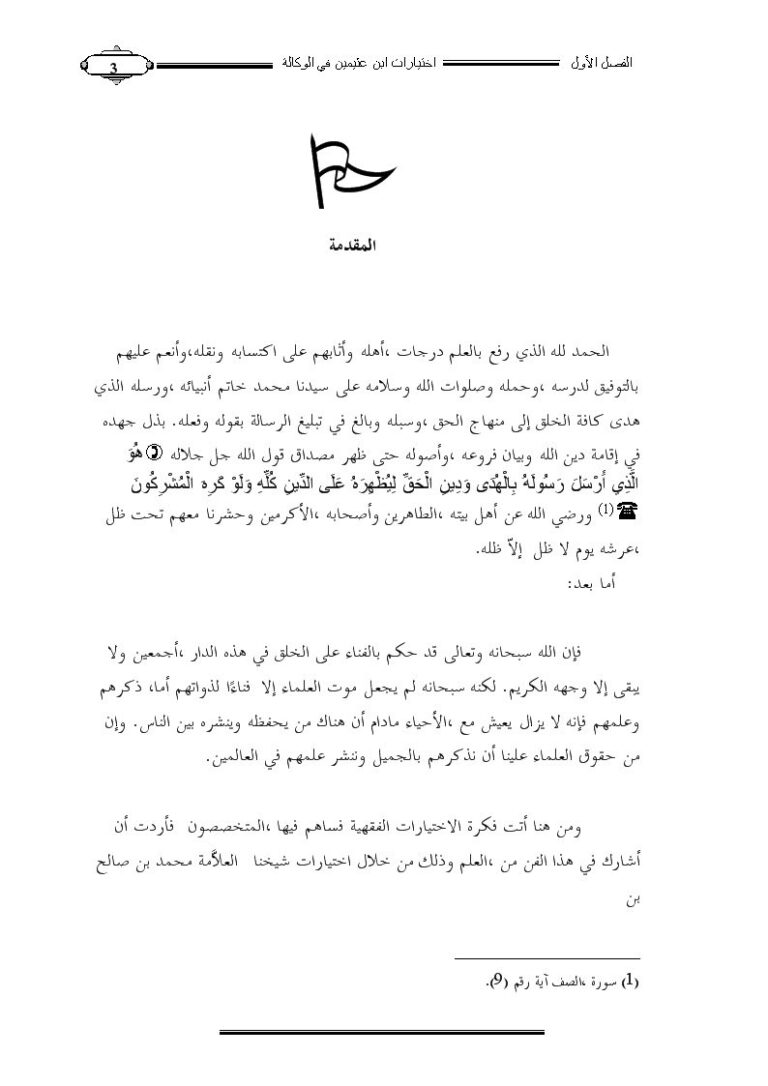 الفصل الأول اختيارات ابن عثيمين في الوكالة 3
المقدمة
الحمد لله الذي رفع بالعلم درجات ،أهله وأثابهم على اكتسابه ونقله،وأنعم عليهم
بالتوفيق لدرسه ،وحمله وصلوات الله وسلامه على سيدنا محمد خاتم أنبيائه ،ورسله الذي
هدى كافة الخلق إلى منهاج الحق ،وسبله وبالغ في تبليغ الرسالة بقوله وفعله. بذل جهده
في إقامة دين الله وبيان فروعه ،وأصوله حتى ظهر مصداق قول الله جل جلاله هُوَ
الَّذِي أَرْسَلَ رَسُولَهُ بِالْهُدَى وَدِينِ الْحَقِّ لِيُظْهِرَهُ عَلَى الدِّينِ كُلِّهِ وَلَوْ كَرِه الْمُشْرِكُونَ
(1) ورضي الله عن أهل بيته ،الطاهرين وأصحابه ،الأكرمين وحشرنا معهم تحت ظل
،عرشه يوم لا ظل إلاّ ظله.
أما بعد:
فإن الله سبحانه وتعالى قد حكم بالفناء على الخلق في هذه الدار ،أجمعين ولا
يبقى إلا وجهه الكريم. لكنه سبحانه لم يجعل موت العلماء إلا فناءًا لذواتهم أما، ذكرهم
وعلمهم فإنه لا يزال يعيش مع ،الأحياء مادام أن هناك من يحفظه وينشره بين الناس. وإن
من حقوق العلماء علينا أن نذكرهم بالجميل وننشر علمهم في العالمين.
ومن هنا أتت فكرة الاختيارات الفقهية فساهم فيها ،المتخصصون فأردت أن
أشارك في هذا الفن من ،العلم وذلك من خلال اختيارات شيخنا العلاَّمة محمد بن صالح
بن
(1) سورة ،الصف آية رقم (9).